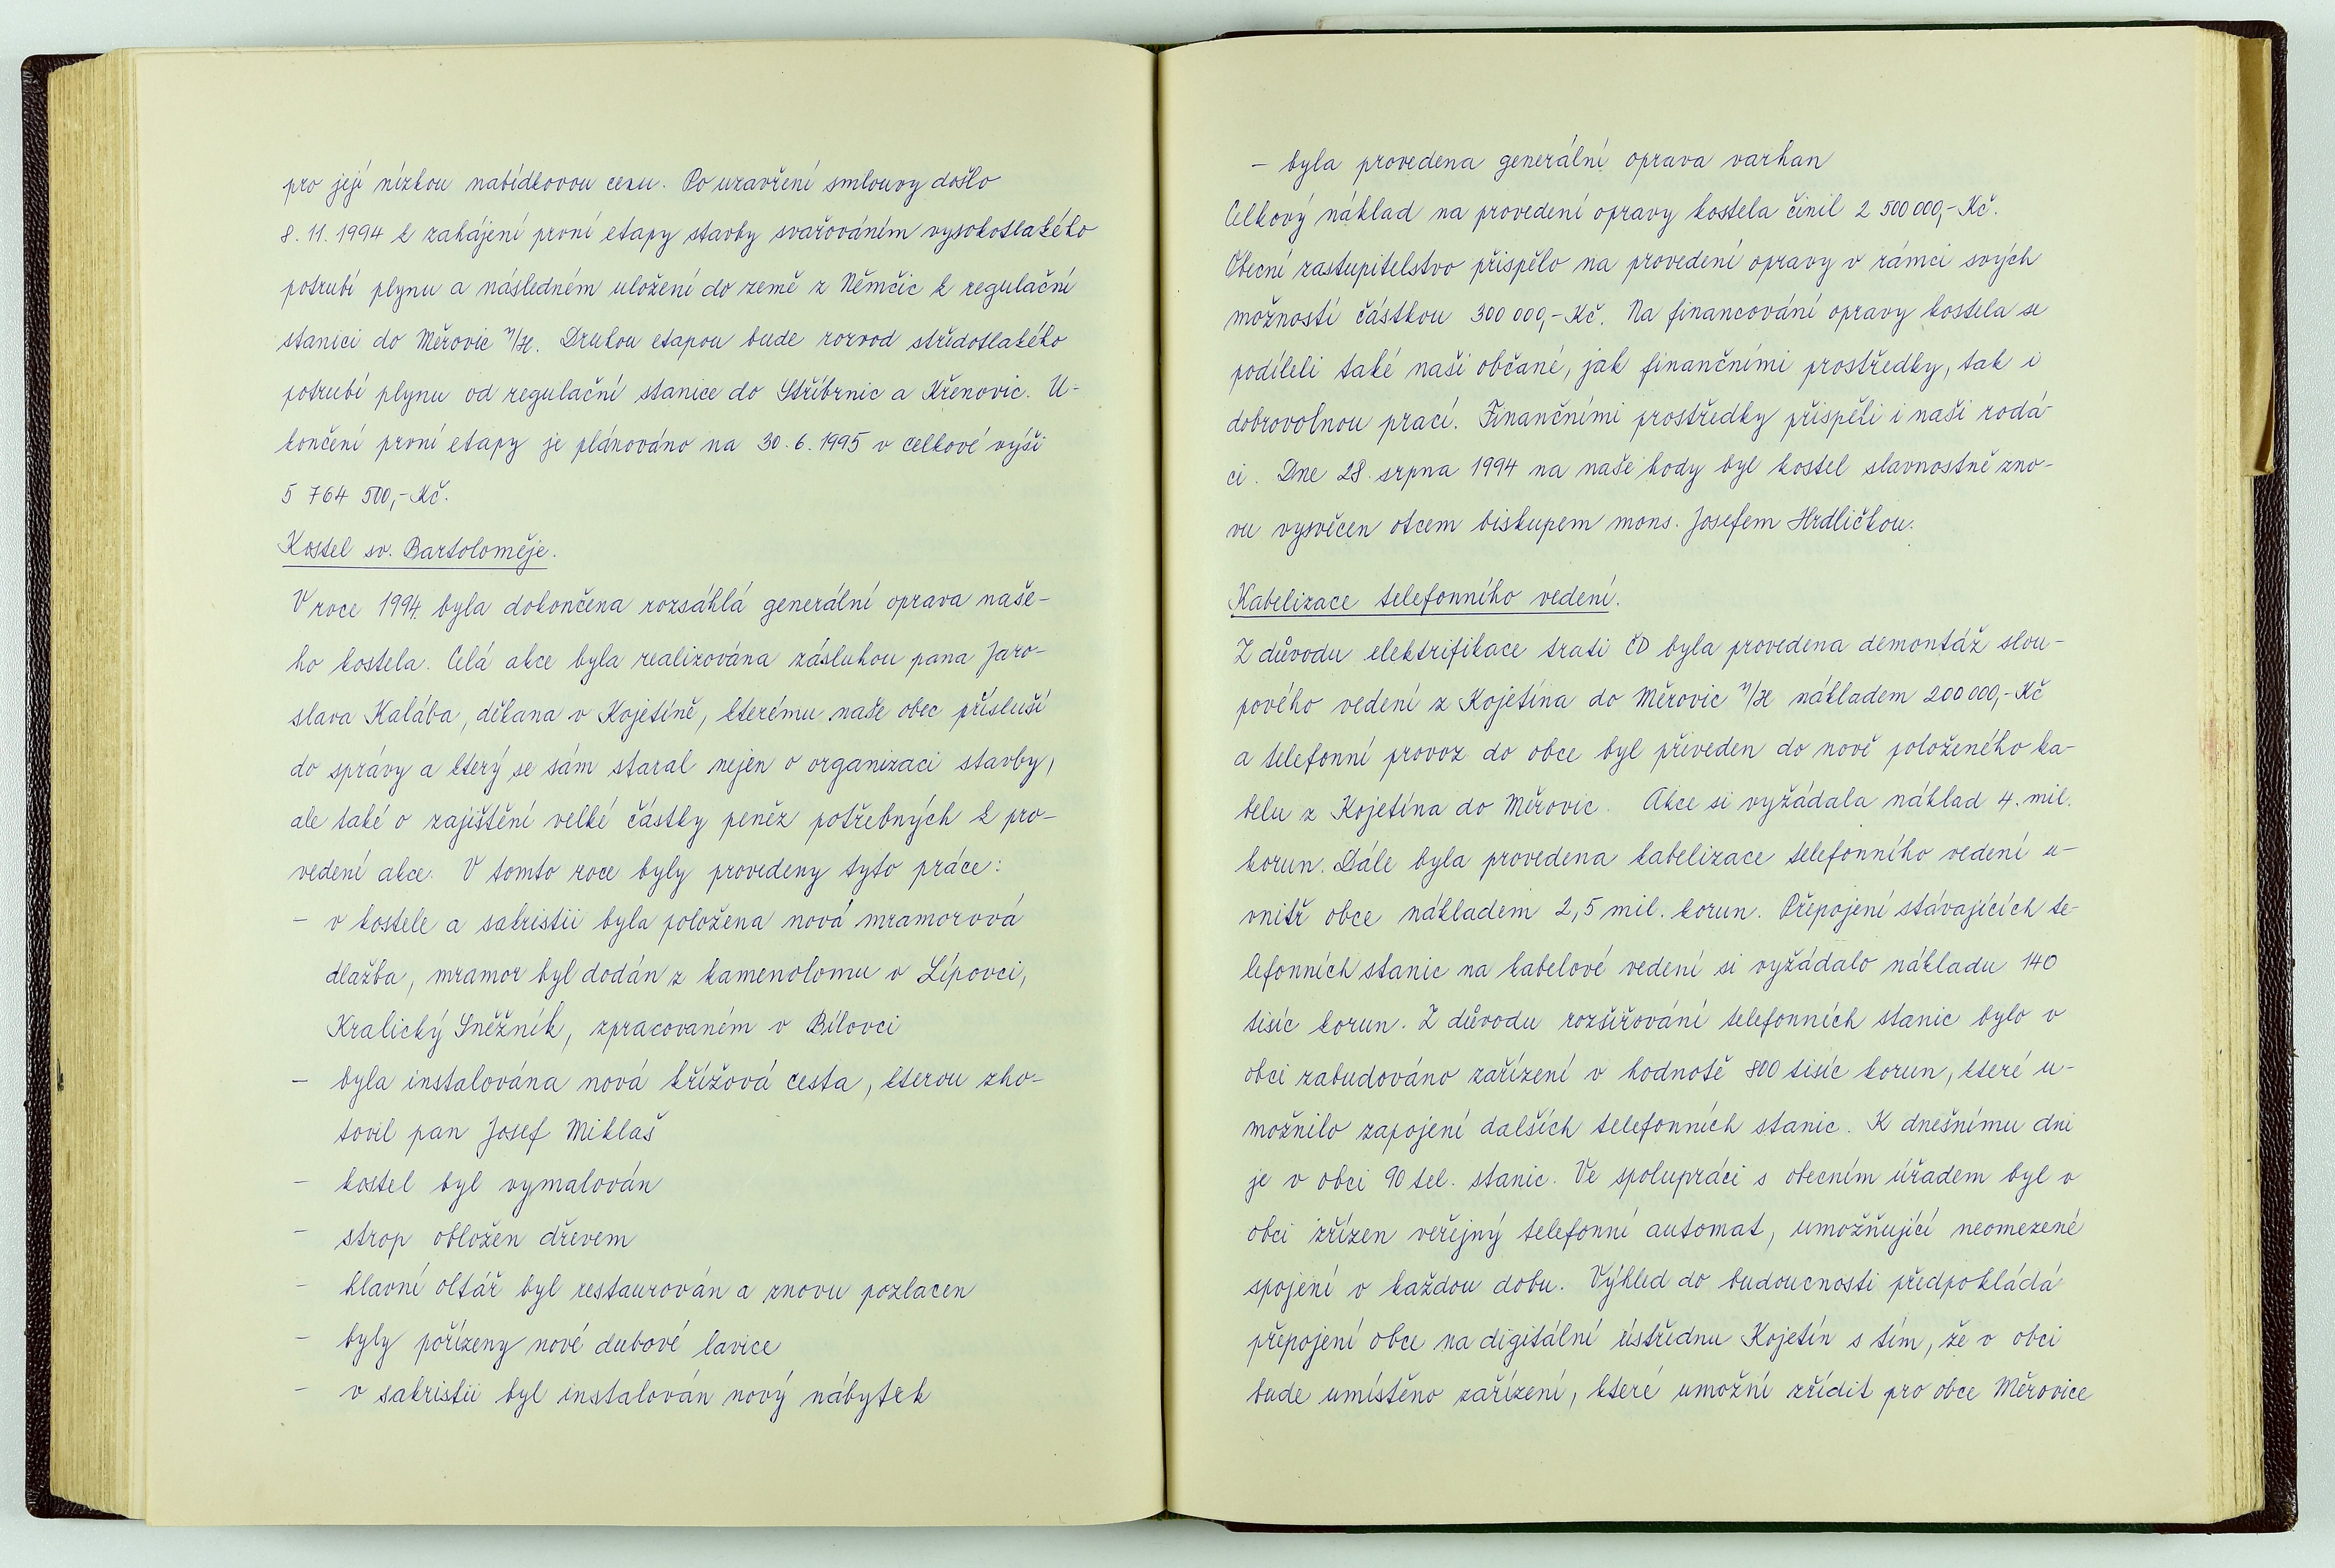 pro její nízkou nabídkovou cenu. Po uzavření smlouvy došlo
8. 11. 1994 k zahájení první etapy stavby svařováním vysokotlakého
potrubí plynu a následném uložení do země z Němčic k regulační
stanici do Měrovic n/H. Druhou etapou bude rozvod středotlakého
potrubí plynu od regulační stanice do Stříbrnic a Křenovic. U-
končení první etapy je plánováno na 30. 6. 1995 v celkové výši
5 764 500,- Kč.
Kostel sv. Bartoloměje.
V roce 1994 byla dokončena rozsáhlá generální oprava naše-
ho kostela. Celá akce byla realizována zásluhou pana Jaro-
slava Kalába, děkana v Kojetíně, kterému naše obec přísluší
do správy a který se sám staral nejen o organizaci stavby,
ale také o zajištění velké částky peněz potřebných k pro-
vedení akce. V tomto roce byly provedeny tyto práce:
- v kostele a sakristii byla položena nová mramorová
dlažba, mramor byl dodán z kamenolomu v Lípovci,
Kralický Sněžník, zpracovaném v Bílovci
- byla instalována nová křížová cesta, kterou zho-
tovil pan Josef Miklaš
- kostel byl vymalován
- strop obložen dřevem
- hlavní oltář byl restaurován a znovu pozlacen
- byly pořízeny nové dubové lavice
- v sakristii byl instalován nový nábytek
- byla provedena generální oprava varhan
Celkový náklad na provedení opravy kostela činil 2 500 000,- Kč.
Obecní zastupitelstvo přispělo na provedení opravy v rámci svých
možností částkou 300 000,- Kč. Na financování opravy kostela se
podíleli také naši občané, jak finančními prostředky, tak i
dobrovolnou prací. Finančními prostředky přispěli i naši rodá-
ci. Dne 28. srpna 1994 na naše hody byl kostel slavnostně zno-
vu vysvěcen otcem biskupem mons. Josefem Hrdličkou.
Kabelizace telefonního vedení.
Z důvodu elektrifikace trati ČD byla provedena demontáž slou-
pového vedení z Kojetína do Měrovic n/H nákladem 200 000,- Kč
a telefonní provoz do obce byl přiveden do nově položeného ka-
belu z Kojetína do Měrovic. Akce si vyžádala náklad 4. mil.
korun. Dále byla provedena kabelizace telefonního vedení u-
vnitř obce nákladem 2,5 mil. korun. Přepojení stávajících te-
lefonních stanic na kabelové vedení si vyžádalo nákladu 140
tisíc korun. Z důvodu rozšiřování telefonních stanic bylo v
obci zabudováno zařízení v hodnotě 800 tisíc korun, které u-
možnilo zapojení dalších telefonních stanic. K dnešnímu dni
je v obci 90 tel. stanic. Ve spolupráci s obecním úřadem byl v
obci zřízen veřejný telefonní automat, umožňující neomezené
spojení v každou dobu. Výhled do budoucnosti předpokládá
přepojení obce na digitální ústřednu Kojetín s tím, že v obci
bude umístěno zařízení, které umožní zřídit pro obce Měrovice